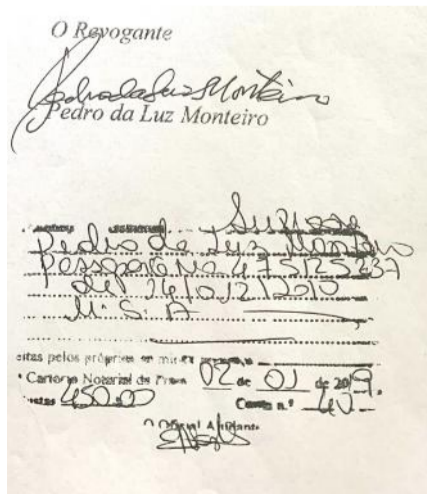 O Revogante
Pedro da Luz Monteiro
Pedro da Luz Monteiro
Supra
Pedro da Luz Monteiro
Passaporte Nº 475125237
de 14/012/2010
U. S. A
eitas pelos próprios em minha presença
Cartório Notarial da Praia 02 de 01 de 2019.
450.00 Conta n.º 40
O Oficial Ajudante